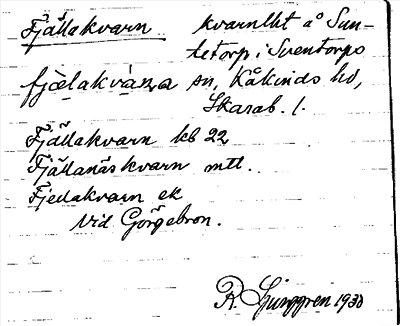 Fjällakvarn kvarnlht å Sun-
tetorp i Sventorps
fjælakvàṇa sn, Kåkinds hd,
Skarab. l.
Fjällakvarn kb 22
Fjällanäskvarn mtl.
Fjellakvarn ek
Vid Görgebron.
R. Ljunggren 1930